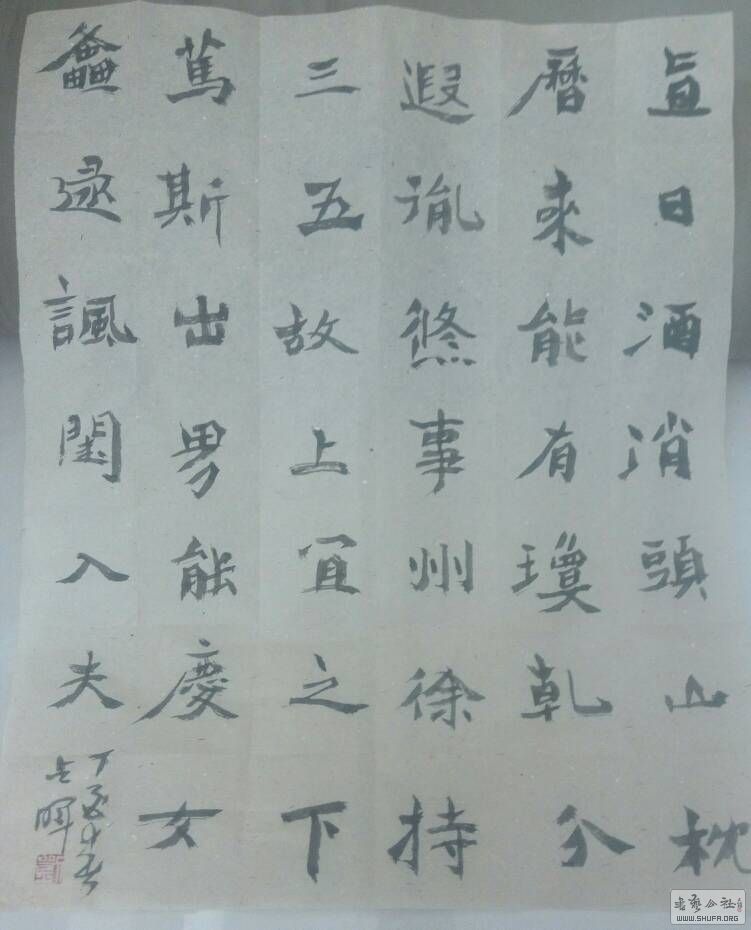 直日酒消頭山枕
曆来能有瓊乾分
遐胤悠事州徐持
三五故上宜之下
篤斯出男能慶女
逯諷閨入夫
丁酉
晖
书艺公社
WWW.SHUFA.ORG